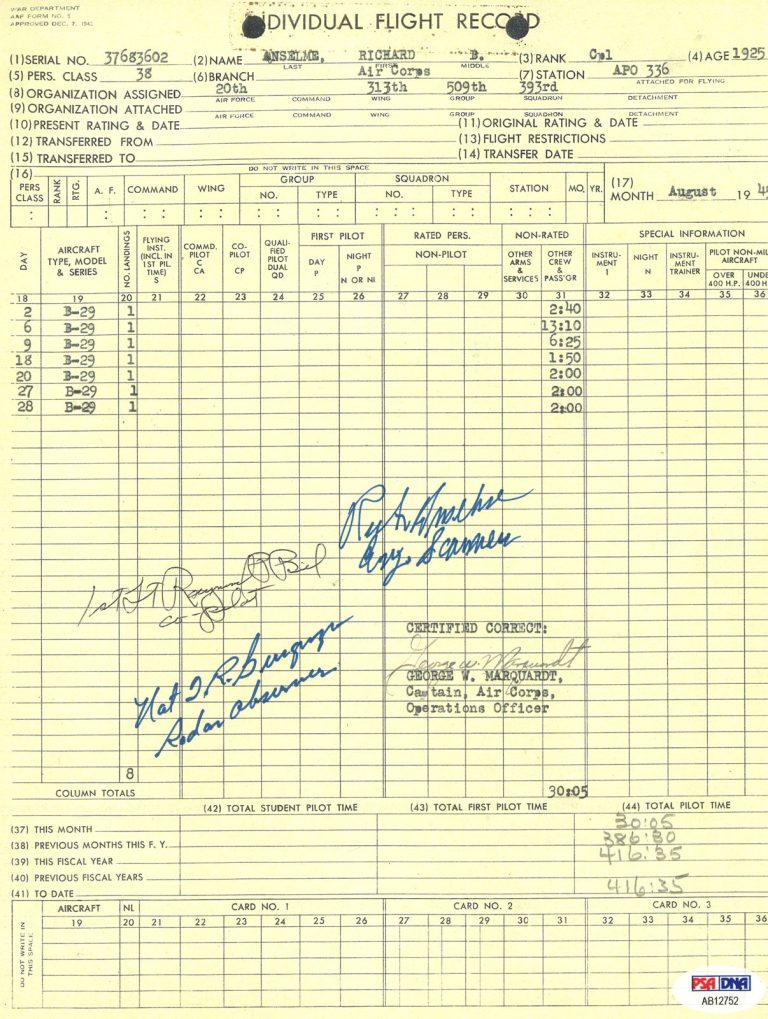 WAR DEPARTMENT
AAF FORM NO. 5
APPROVED DEC. 7, 194
INDIVIDUAL FLIGHT RECORD
(1) SERIAL NO. 37683602 (2) NAME ANSELME, RICHARD B. (3) RANK Cpl (4) AGE 1925
LAST FIRST MIDDLE
(5) PERS. CLASS 38 (6) BRANCH Air Corps (7) STATION APO 336
ATTACHED FOR FLYING
(8) ORGANIZATION ASSIGNED 20th 313th 509th 393rd
AIR FORCE COMMAND WING GROUP SQUADRON DETACHMENT
(9) ORGANIZATION ATTACHED
AIR FORCE COMMAND WING GROUP SQUADRON DETACHMENT
(10) PRESENT RATING & DATE (11) ORIGINAL RATING & DATE
(12) TRANSFERRED FROM (13) FLIGHT RESTRICTIONS
(15) TRANSFERRED TO (14) TRANSFER DATE
(16) DO NOT WRITE IN THIS SPACE
PERS CLASS RANK RTG. A. F. COMMAND WING GROUP NO. TYPE SQUADRON NO. TYPE STATION MO. YR. (17) MONTH August 19 4
DAY AIRCRAFT TYPE, MODEL & SERIES NO. LANDINGS FLYING INST. (INCL. IN 1ST PIL. TIME) S COMMD. PILOT C CA CO-PILOT CP QUALIFIED PILOT DUAL QD FIRST PILOT DAY P NIGHT P N OR NI RATED PERS. NON-PILOT NON-RATED OTHER ARMS & SERVICES OTHER CREW & PASS'GR SPECIAL INFORMATION INSTRUMENT I NIGHT N INSTRU-MENT TRAINER PILOT NON-MIL AIRCRAFT OVER 400 H.P. UNDE 400 H
18 19 20 21 22 23 24 25 26 27 28 29 30 31 32 33 34 35 36
2 B-29 1 2:40
6 B-29 1 13:10
9 B-29 1 6:25
18 B-29 1 1:50
20 B-29 1 2:00
27 B-29 1 2:00
28 B-29 1 2:00
Scanner
1st Lt
co-pilot
CERTIFIED CORRECT:
George W. Marquardt
GEORGE W. MARQUARDT,
Captain, Air Corps,
Operations Officer
Radar Observer
8
COLUMN TOTALS 30:05
(42) TOTAL STUDENT PILOT TIME (43) TOTAL FIRST PILOT TIME (44) TOTAL PILOT TIME
(37) THIS MONTH 30:05
(38) PREVIOUS MONTHS THIS F. Y. 386:30
(39) THIS FISCAL YEAR 416:35
(40) PREVIOUS FISCAL YEARS
(41) TO DATE 416:35
DO NOT WRITE IN THIS SPACE
AIRCRAFT NL CARD NO. 1 CARD NO. 2 CARD NO. 3
19 20 21 22 23 24 25 26 27 28 29 30 31 32 33 34 35 36
PSA DNA
AB12752